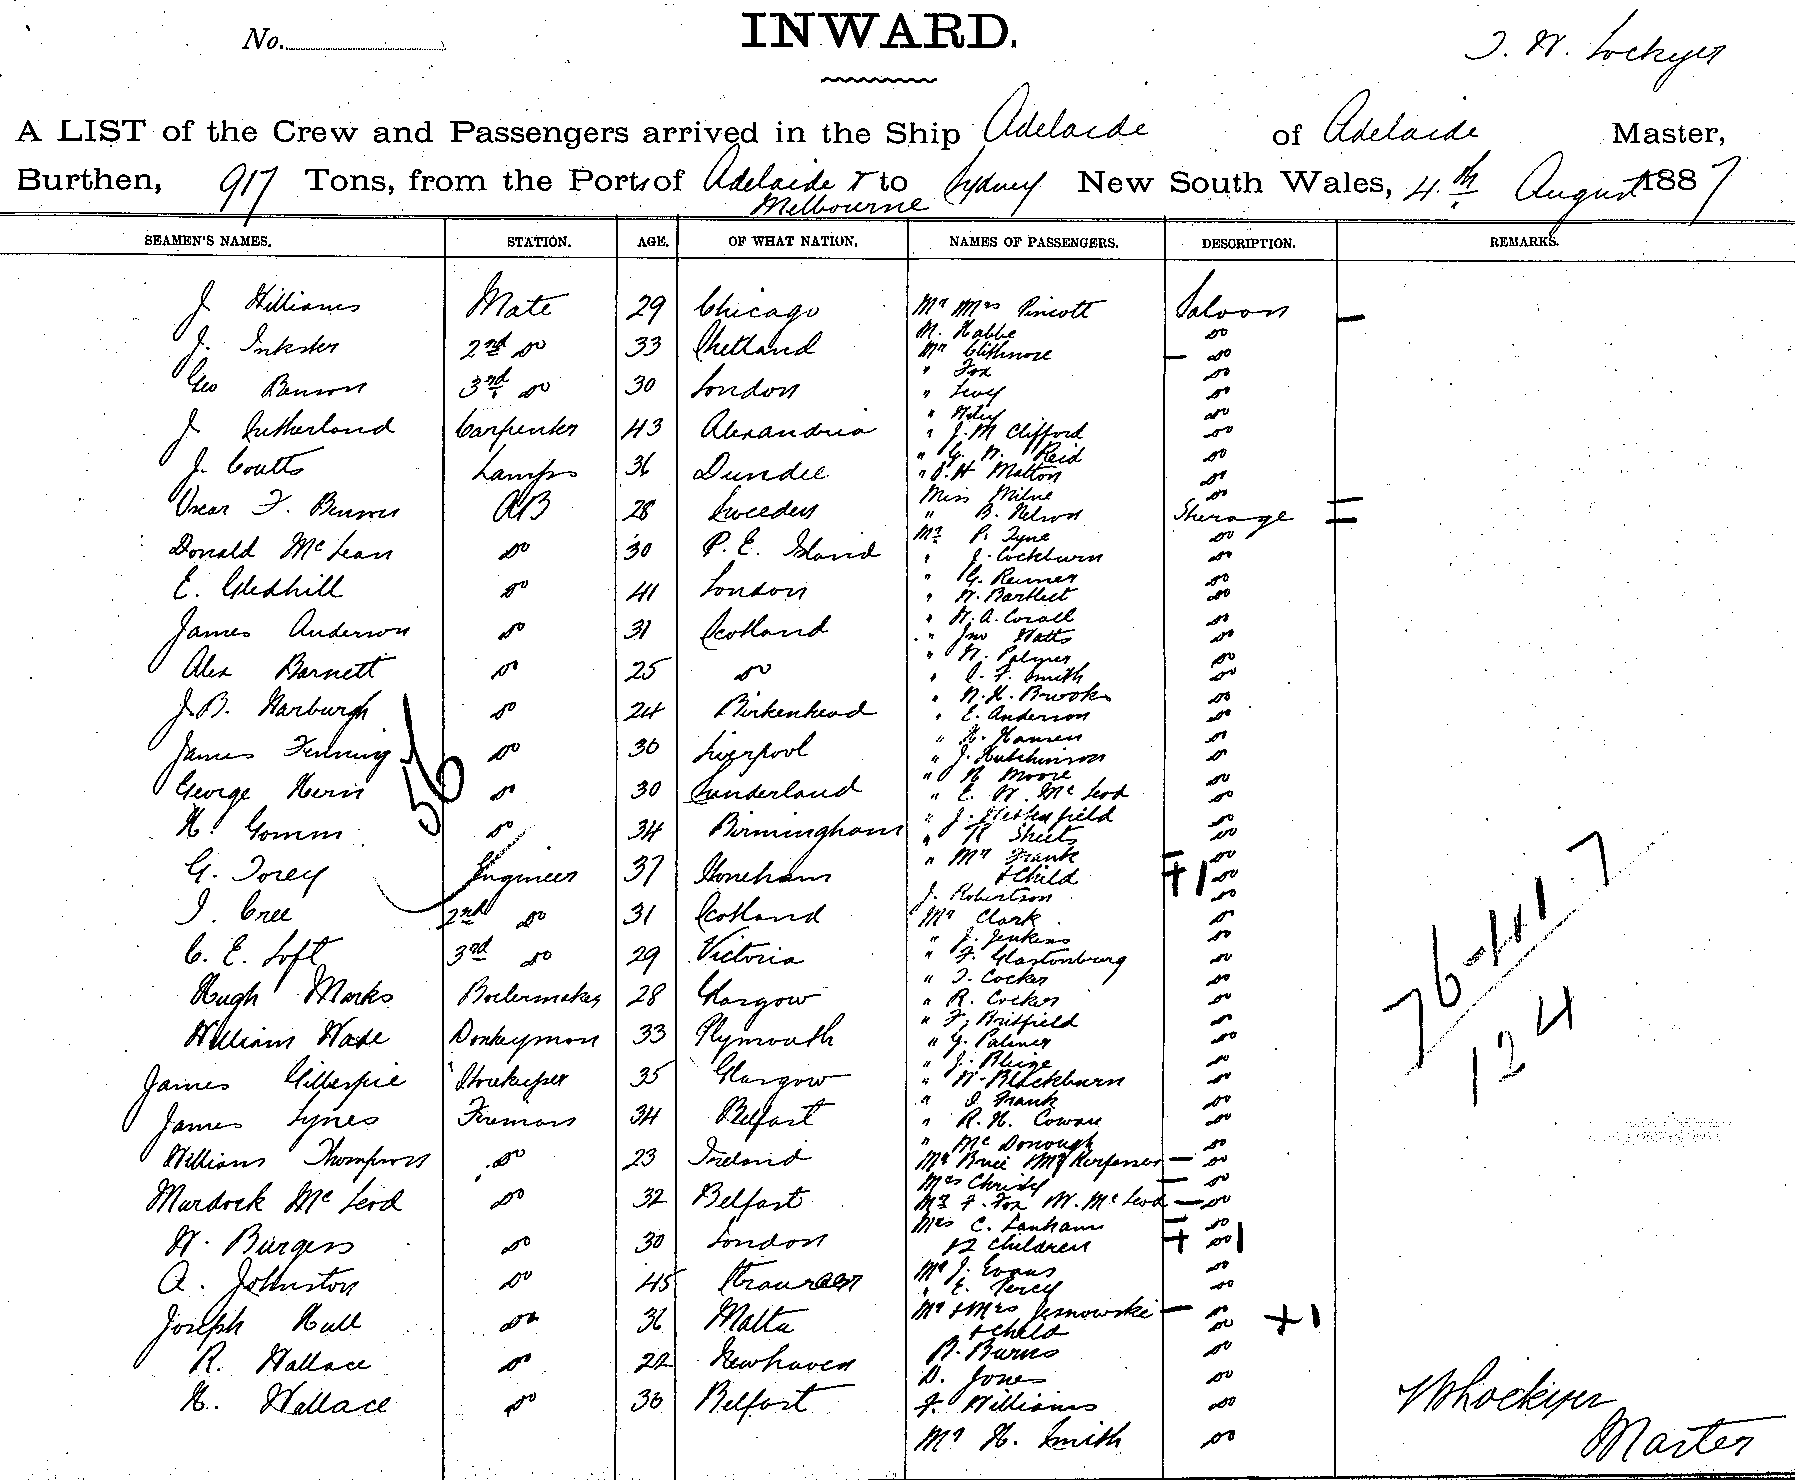 No.
INWARD.
T. W. Lockyer
A LIST of the Crew and Passengers arrived in the Ship Adelaide of Adelaide Master,
Burthen, 917 Tons, from the Ports of Adelaide & to Sydney New South Wales, 4.th August 1887
Melbourne
SEAMEN'S NAMES. STATION. AGE. OF WHAT NATION. NAMES OF PASSENGERS. DESCRIPTION. REMARKS.
J Williams Mate 29 Chicago
J. Inkster 2nd do 33 Shetland
Geo Benson 3rd do 30 London
J Sutherland Carpenter 43 Alexandria
J. Coutts Lamps 36 Dundee
Oscar F. Benson AB 28 Sweeden
Donald McLean do 30 P. E. Island
E. Gledhill do 41 London
James Anderson do 31 Scotland
Alex Barnett do 25 do
J. B. Harburgh do 24 Birkenhead
James Fenning do 30 Liverpool
George Hern do 30 Sunderland
H. Gomm do 34 Birmingham
G. Torey Engineer 37 Stoneham
J. Cree 2nd do 31 Scotland
C. E. Loft 3rd do 29 Victoria
Hugh Marks Boilermaker 28 Glasgow
William Wade Donkeyman 33 Plymouth
James Gillespie Storekeeper 35 Glasgow
James Lynes Fireman 34 Belfast
William Thompson do 23 Ireland
Murdock McLeod do 32 Belfast
W. Burgess do 30 London
A. Johnston do 45 Stranraer
Joseph Hull do 36 Malta
R. Wallace do 22 Newhaven
H. Wallace do 30 Belfast
56
Mr Mrs Pincott Saloon
M. Habbe do
Mr do
" Fox do
" Levy do
" do
" J. M Clifford do
" G. W. Reid do
" H Matton do
Miss Milne do
" B. Nelson Sterage
Mr P. Tyne do
" J. Cockburn do
" G. Renner do
" W. Bartlett do
" W. A. Corall do
" Jno Watts do
" W. Palmer do
" F. Smith do
" W. H. Brooks do
" E. Anderson do
" H. Hansen do
" J. Hutchinson do
" H Moore do
" E. W. McLeod do
" J. do
" R Skeets do
" Mr Frank do
& Child + 1 do
J. Robertson do
Mr Clark do
" J. Jenkins do
" F. Glastonburg do
" T. Cocker do
" R. Cocker do
" F. Britfield do
" G. Palmer do
" J. do
" W. Blackburn do
" J. Frank do
" R. H. Cowan do
" McDonough do
Mr Brice Mr do
Mrs Christy do
Mr F. Fox W. McLeod do
Mrs C. Lanham do
& 2 Children + do 1
Mr J. Evans do
" E. Percy do
Mr & Mrs Jesnowski do
& Child do + 1
B. Burns do
D. Jones do
J. Williams do
Mr H. Smith do
124
Lockyer
Master